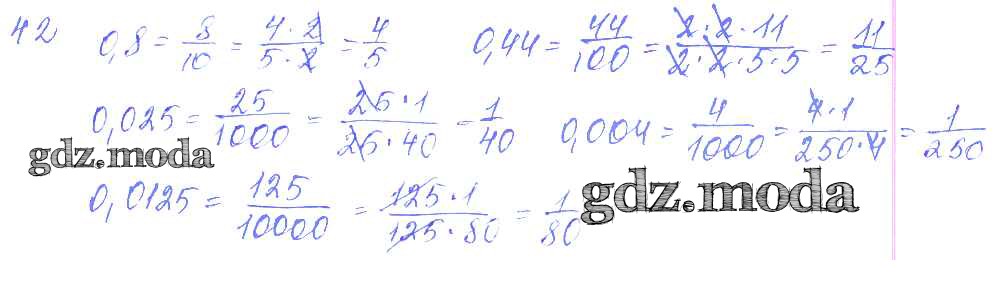 42 0,8 = 8/10 = 4·2/5·2 = 4/5 0,44 = 44/100 = 2·2·11/2·2·5·5 = 11/25
0,025 = 25/1000 = 25·1/25·40 = 1/40 0,004 = 4/1000 = 4·1/250·4 = 1/250
gdz.moda
0,0125 = 125/10000 = 125·1/125·80 = 1/80 gdz.moda